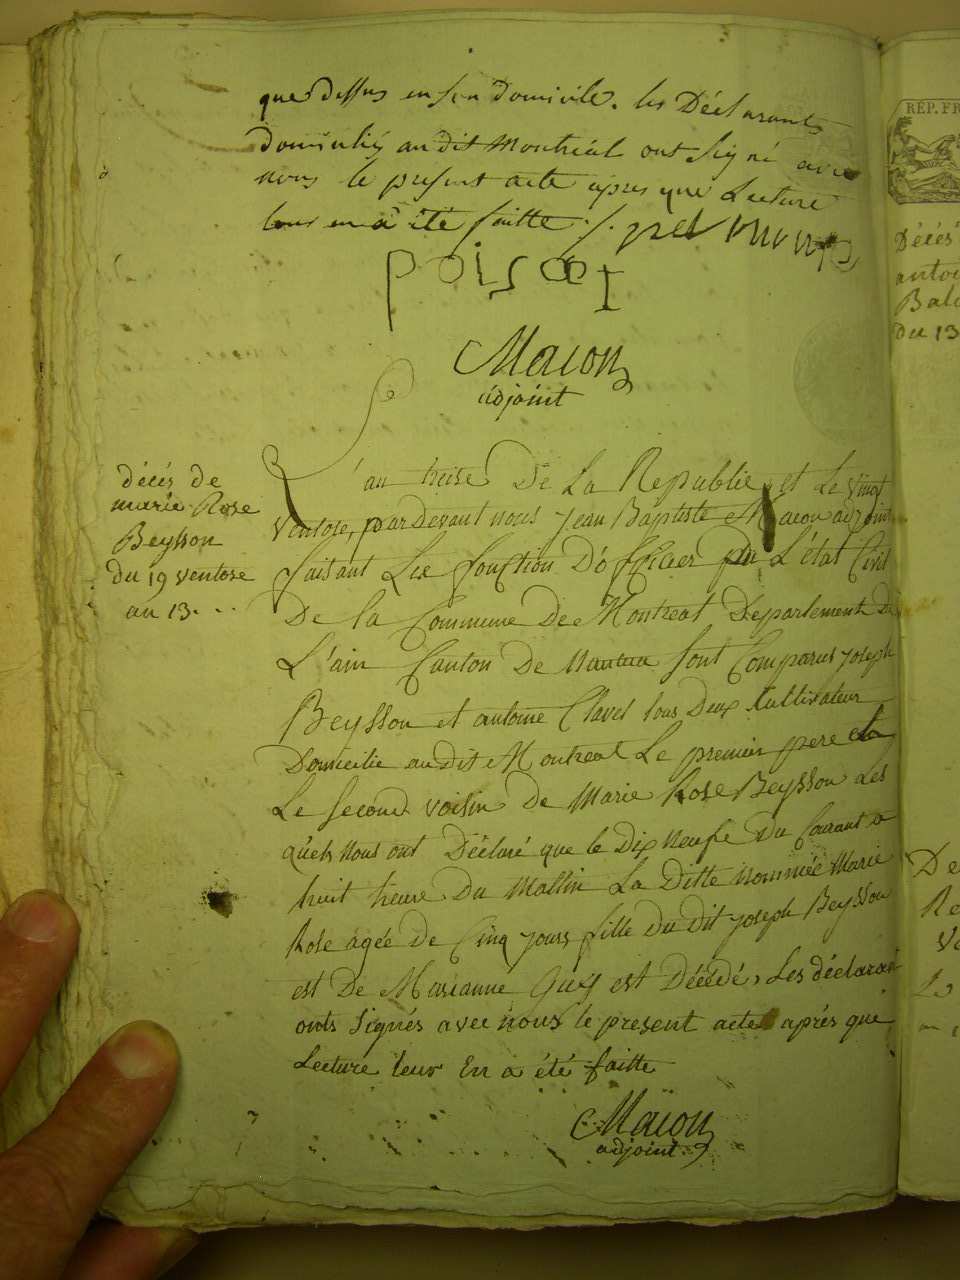 que dessus en son domicile. les Déclarants
domicilié audit Montréal ont signé avec
nous le présent acte apres que Lecture
leur en a été faitte
poisat
Macon
adjoint
décés de
marie Rose
Beysson
du 19 ventose
an 13...
L'an treize De La Republie et Le vingt
ventose, par Devant nous Jean Baptiste Macon adjoint
faisant Les fonction D'officier de L'état Civil
De la Commune De Montreal Departement De
L'ain Canton De Nantua sont Comparus joseph
Beysson et antoine Clavel tous Deux Cultivateur
Domicilié audit Montreal Le premier pere et
Le second voisin De Marie Rose Beysson Les
quels Nous ont Déclaré que le Dix neufe Du Courant a
huit heure Du Mattin La Ditte nommée Marie
Rose agée De Cinq jours fille Du Dit joseph Beysson
est De Marianne est Décédé, Les déclarant
onts signés avec nous le present acte aprés que
Lecture leur En a été faitte
Macon
adjoint
REP. FR
Décés
antoi
Bal
du 13
De
Re